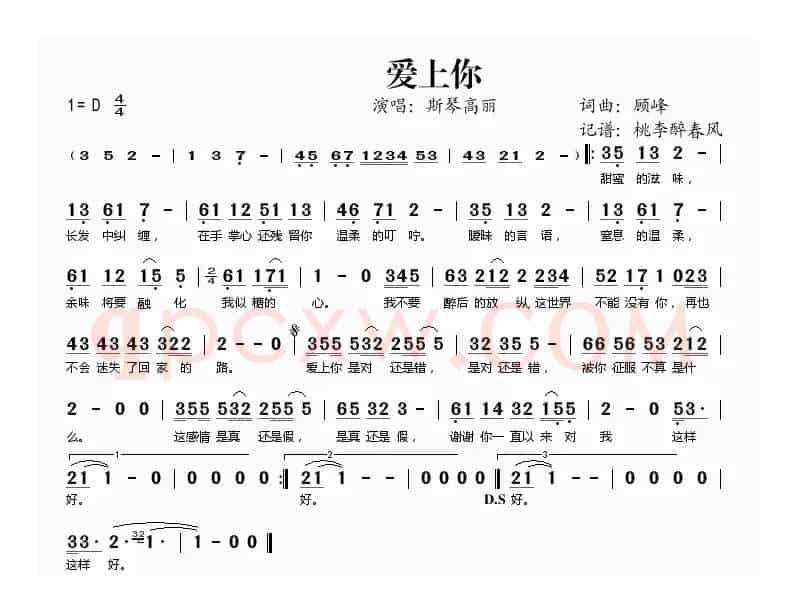 爱上你
1=D 4/4 演唱：斯琴高丽 词曲：顾峰
记谱：桃李醉春风
( 3 5 2 - | 1 3 7 - | 45 67 1234 53 | 43 21 2 - ) ‖: 35 13 2 -
甜蜜 的滋 味，
13 61 7 - | 61 12 51 13 | 46 71 2 - | 35 13 2 - | 35 61 7 -
长发 中纠 缠， 在手 掌心 还残 留你 温柔 的叮 咛。 暧昧 的言 语， 窒息 的温 柔，
61 12 15 5 | 2/4 61 171 | 1 - 0 345 | 63 212 212 3 | 52 171 1 023
余味 将要 融 化 我似 糖的 心。 我不要 醉后 的放 纵, 这世界 不能 没有 你，再也
43 43 43 322 | 2 - - 0 | 355 532 255 5 | 32 35 5 - | 66 56 53 212
不会 迷失 了回 家 的 路。 爱上你 是对 还是 错， 是对 还是 错， 被你 征服 不算 是什
2 - 0 0 | 355 532 255 5 | 65 35 5 - | 61 14 32 155 | 5 - 0 53·
么。 这感情 是真 还是 假， 是真 还是 假， 谢谢 你一 直以 来 对 我 这样
1 2 3
21 1 - 0 | 0 0 0 0 :‖ 21 1 - - | 0 0 0 0 ‖ 21 1 - - | 0 0 0 0
好。 好。 D.S 好。
33· 2· 32 1· | 1 - 0 0 ‖
这样 好。
qpcxw.COM